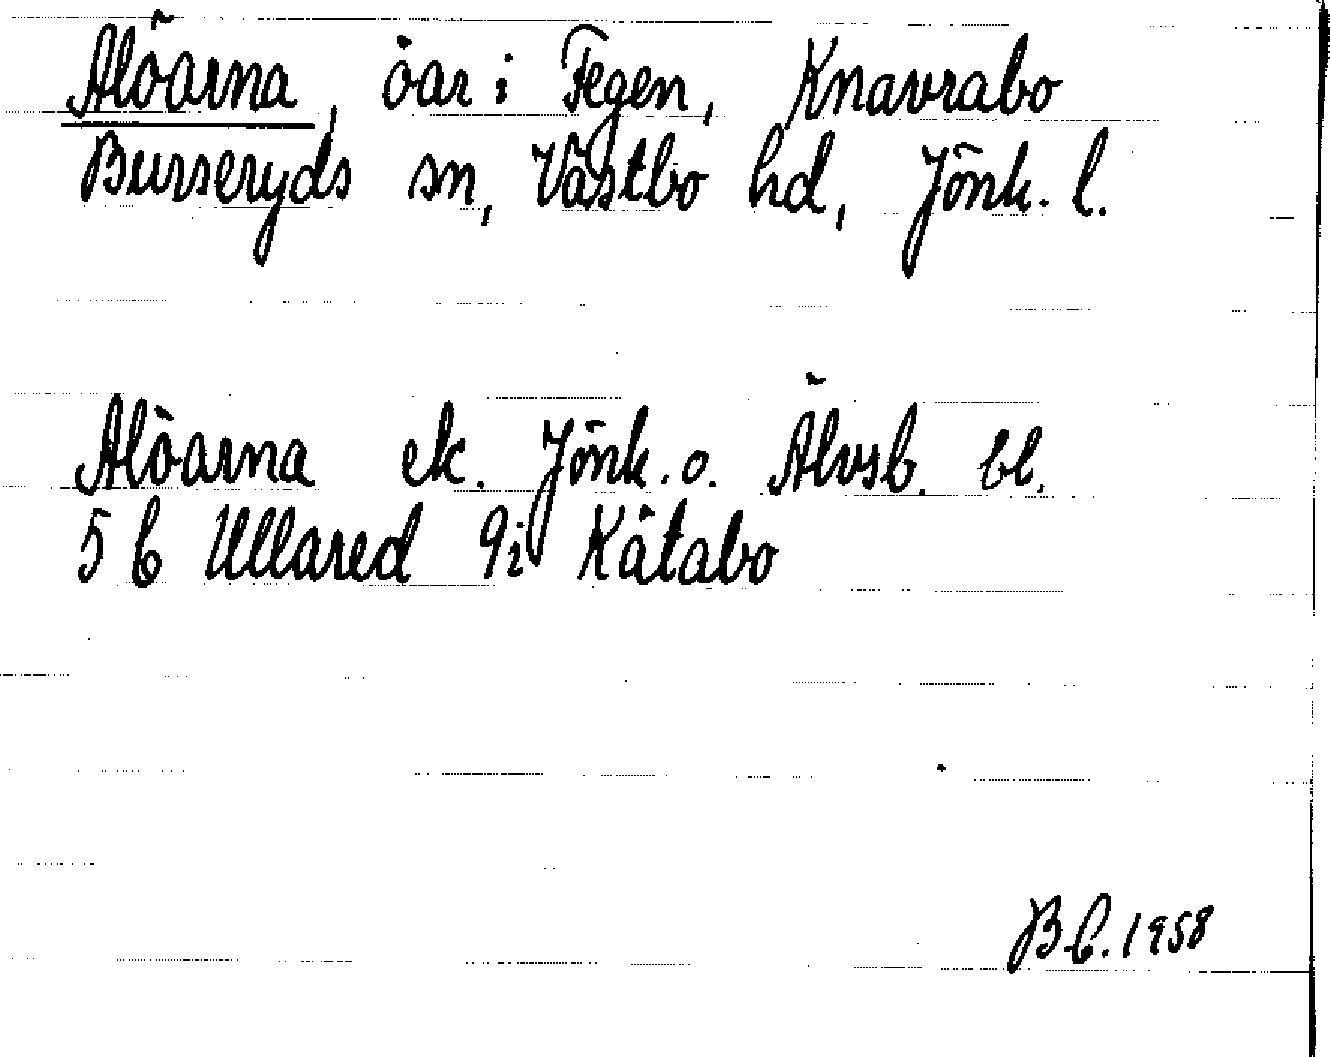 Alöarna, öar i Fegen, Knavrabo
Burseryds sn, Västbo hd, Jönk. l.
Alöarna ek. Jönk. o. Älvsb. bl.
5 C Ullared 9i Kätabo
B.C. 1958